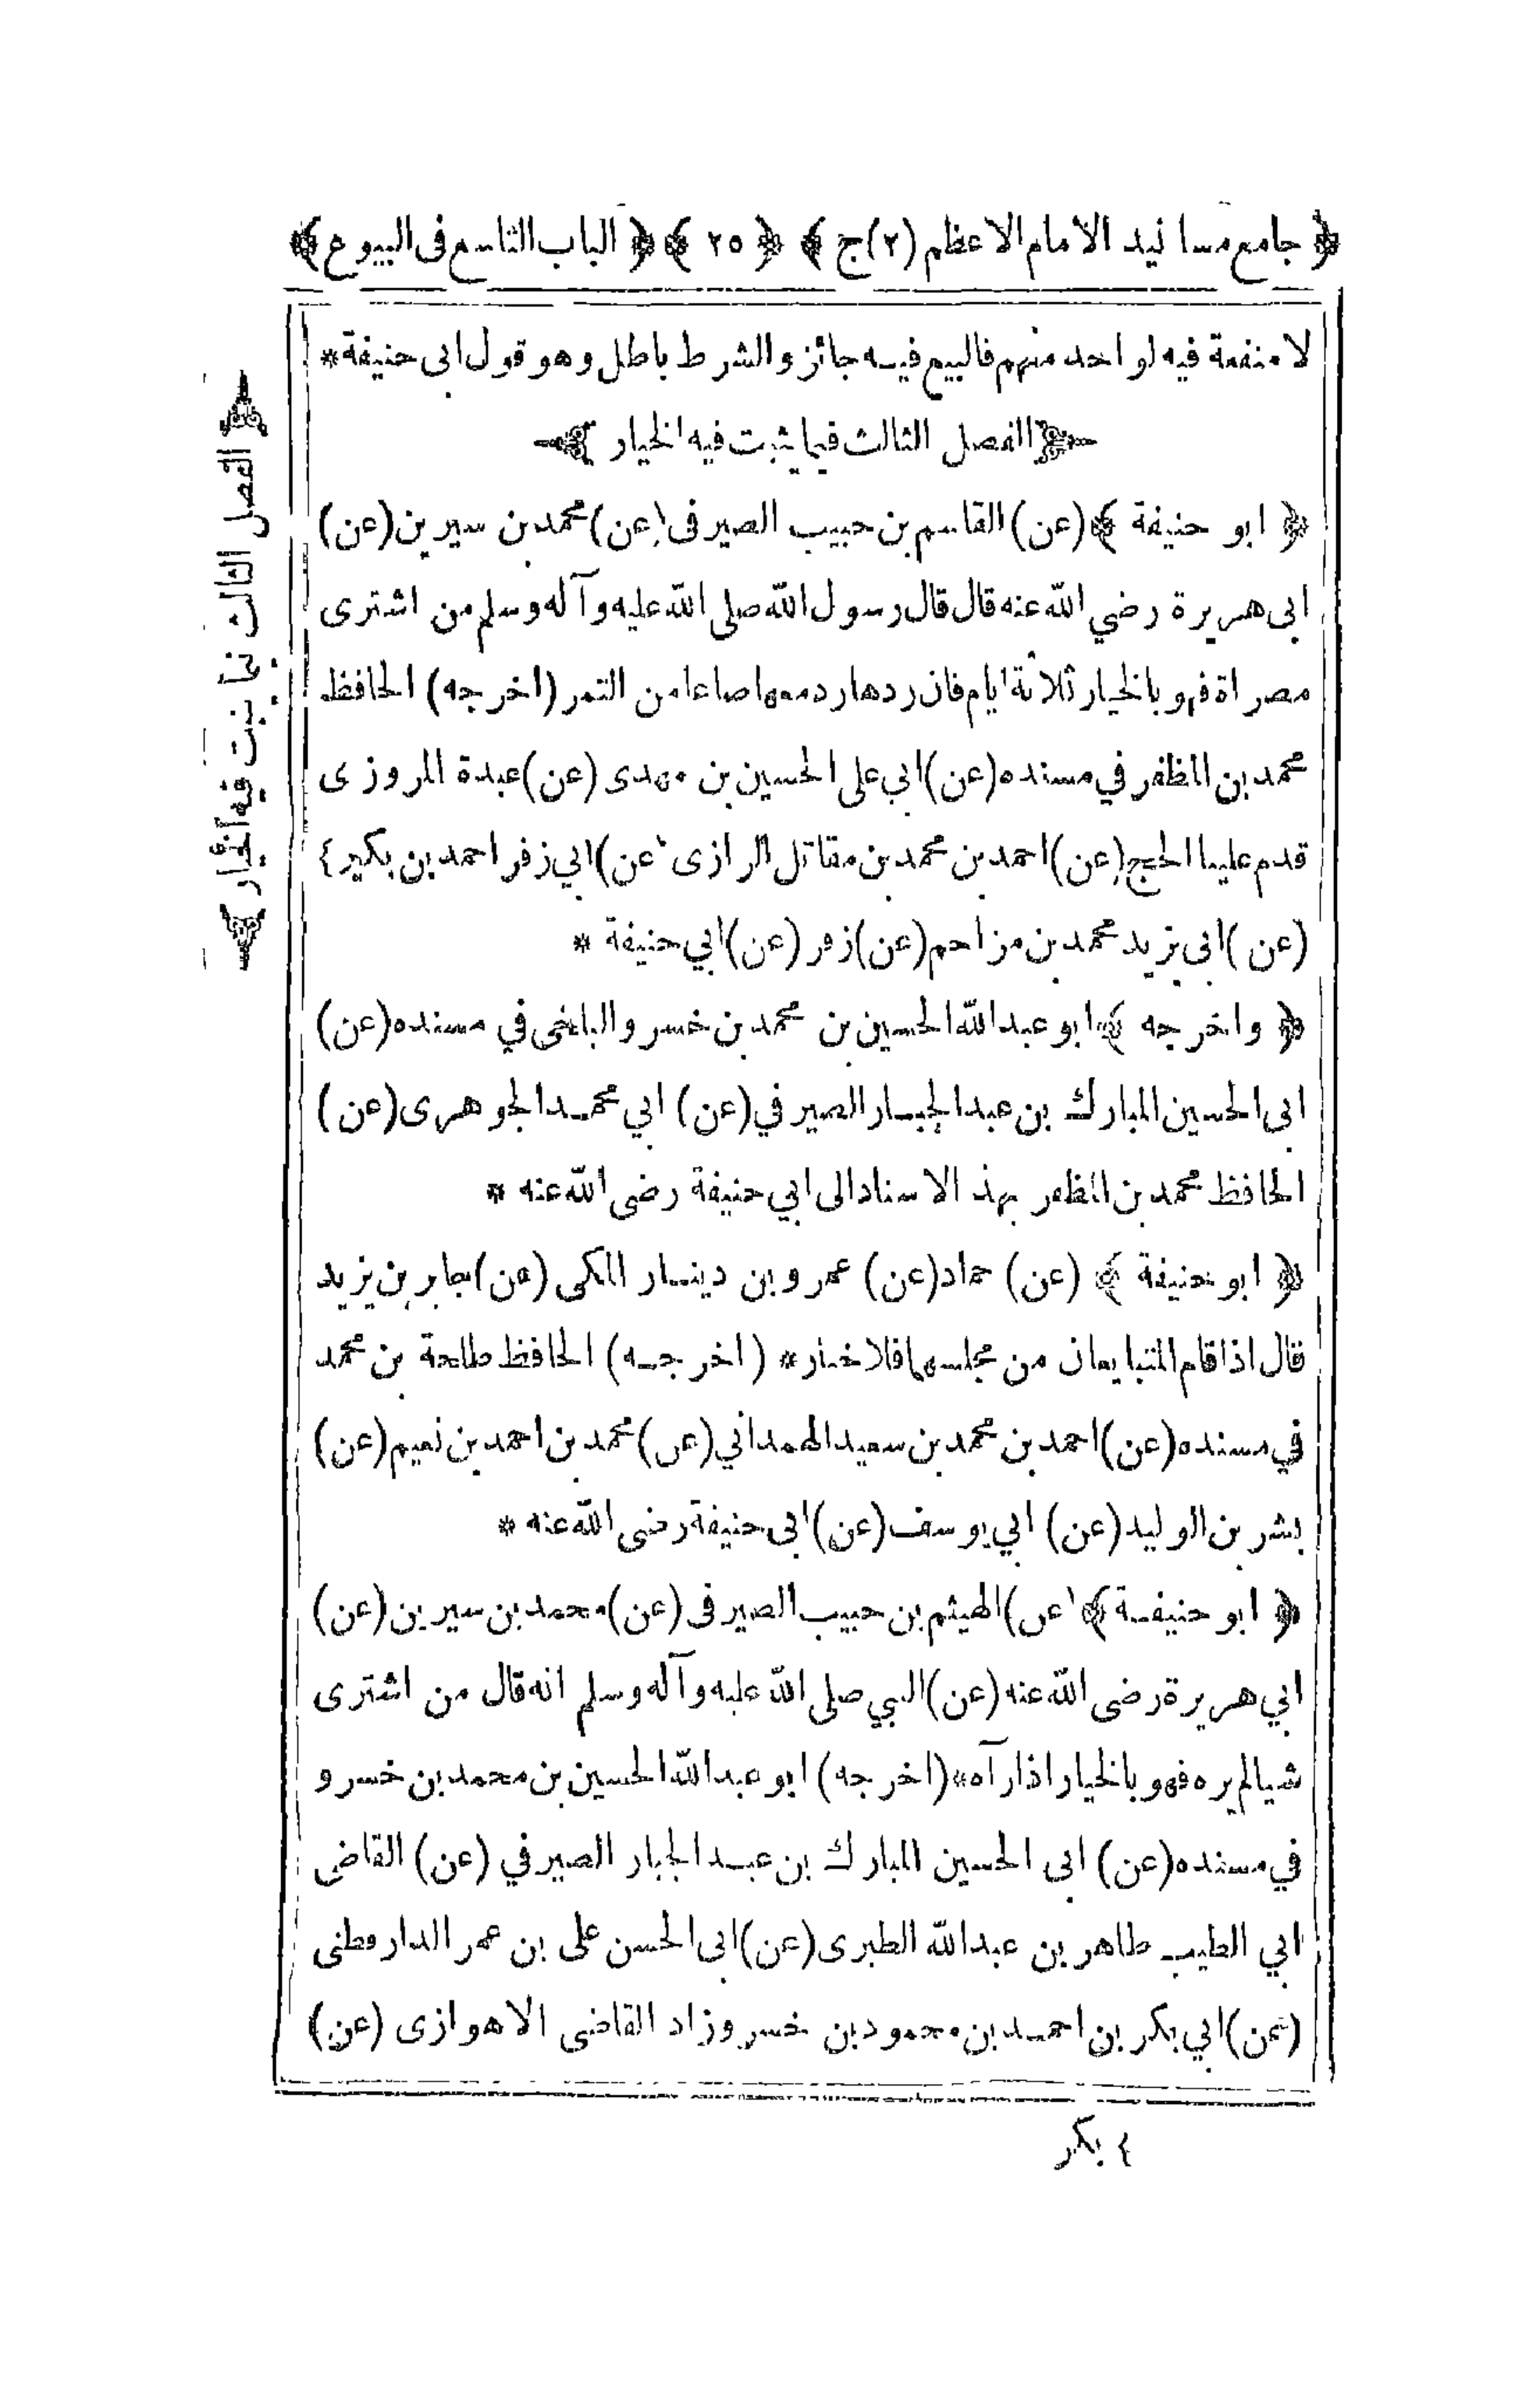 ﴿ جامع مسانيد الامام الاعظم (٢)ج ﴾ ﴿ ٢٥ ﴾ ﴿ الباب التاسع فى البيوع ﴾
لا منفعة فيه لواحد منهم فالبيع فيه جائز والشرط باطل وهو قول ابى حنيفة *
﴿ الفصل الثالث فيما يثبت فيه الخيار ﴾
﴿ ابو حنيفة ﴾ (عن) القاسم بن حبيب الصير فى (عن) محمد بن سيرين (عن)
ابى هريرة رضي الله عنه قال قال رسول الله صلى الله عليه وآله وسلم من اشترى
مصراة فهو بالخيار ثلاثة ايام فان ردها رد معها صاعا من التمر (اخرجه) الحافظ
محمد بن المظفر في مسنده (عن) ابي على الحسين بن مهدى (عن) عبدة المروزى
قدم علينا الحج (عن) احمد بن محمد بن مقاتل الرازى (عن) ابي زفر احمد بن بكير ٤
(عن) ابى يزيد محمد بن مزاحم (عن) زفر (عن) ابي حنيفة *
﴿ واخرجه ﴾ ابو عبدالله الحسين بن محمد بن خسرو البلخى في مسنده (عن)
ابى الحسين المبارك بن عبدالجبار الصير في (عن) ابي محمد الجوهرى (عن)
الحافظ محمد بن المظفر بهذ الاسناد الى ابي حنيفة رضى الله عنه *
﴿ ابو حنيفة ﴾ (عن) حماد (عن) عمرو بن دينار المكى (عن) جابر بن يزيد
قال اذا قام المتبايعان من مجلسهما فلا خيار * (اخرجه) الحافظ طلحة بن محمد
في مسنده (عن) احمد بن محمد بن سعيد الهمداني (عن) محمد بن احمد بن نعيم (عن)
بشر بن الوليد (عن) ابي يوسف (عن) ابى حنيفة رضى الله عنه *
﴿ ابو حنيفة ﴾ (عن) الهيثم بن حبيب الصير فى (عن) محمد بن سيرين (عن)
ابي هريرة رضى الله عنه (عن) النبي صلى الله عليه وآله وسلم انه قال من اشترى
شيا لم يره فهو بالخيار اذا رآه * (اخرجه) ابو عبدالله الحسين بن محمد بن خسرو
في مسنده (عن) ابى الحسين المبارك بن عبد الجبار الصير في (عن) القاضى
ابي الطيب طاهر بن عبدالله الطبرى (عن) ابى الحسن على بن عمر الدارقطنى
(عن) ابي بكر بن احمد بن محمود بن خسروزاد القاضى الاهوازى (عن)
٤ بكر
﴿ الفصل الثالث فيما يثبت فيه الخيار ﴾